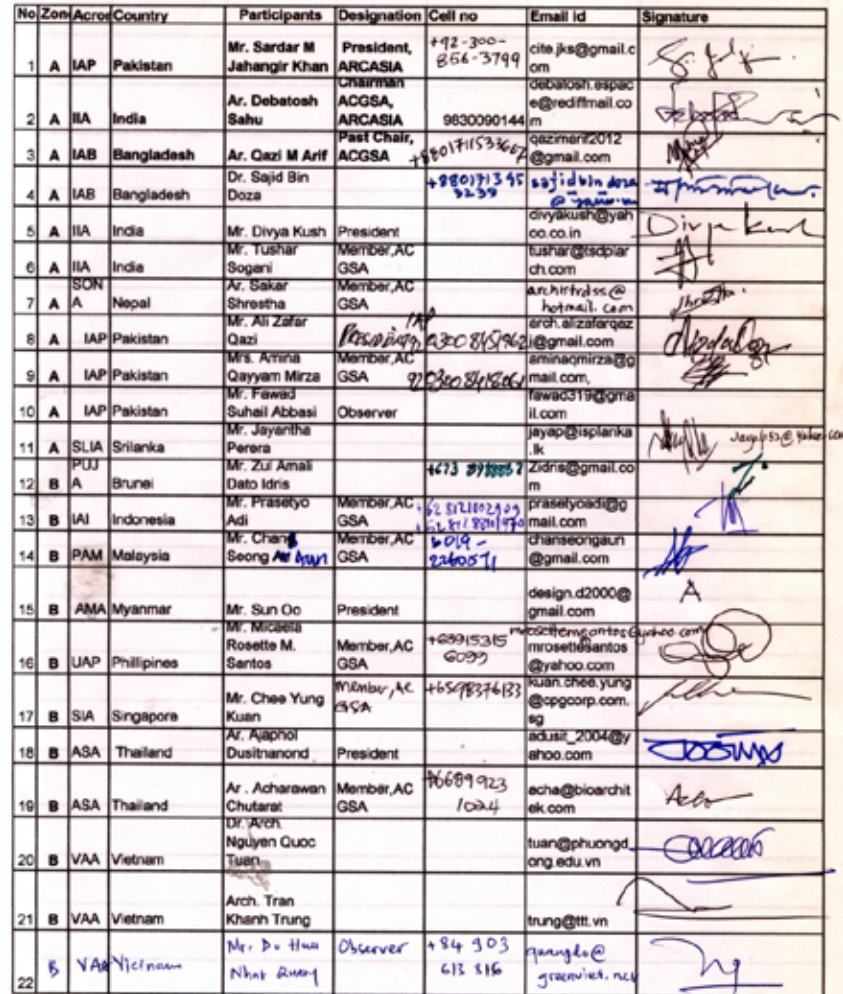 No Zone Acron Country Participants Designation Cell no Email id Signature
1 A IAP Pakistan Mr. Sardar M Jahangir Khan President, ARCASIA +92-300-856-3799 cite.jks@gmail.com
2 A IIA India Ar. Debatosh Sahu Chairman ACGSA, ARCASIA 9830090144 debatosh.espace@rediffmail.com
3 A IAB Bangladesh Ar. Qazi M Arif Past Chair, ACGSA qazimarif2012@gmail.com
4 A IAB Bangladesh Dr. Sajid Bin Doza +880171395 3239 sajidbindoza
5 A IIA India Mr. Divya Kush President divyakush@yahoo.co.in Divya Kush
6 A IIA India Mr. Tushar Sogani Member,AC GSA tushar@tsdplarch.com
7 A SONA Nepal Ar. Sakar Shrestha Member,AC GSA hotmail.com
8 A IAP Pakistan Mr. Ali Zafar Qazi IAP 0300 8451962 arch.alizafarqazi@gmail.com
9 A IAP Pakistan Mrs. Amina Qayyam Mirza Member,AC GSA aminaqmirza@gmail.com,
10 A IAP Pakistan Mr. Fawad Suhail Abbasi Observer fawad319@gmail.com
11 A SLIA Srilanka Mr. Jayantha Perera jayap@isplanka.lk
12 B PUJA Brunei Mr. Zul Amali Dato Idris Zidris@gmail.com
13 B IAI Indonesia Mr. Prasetyo Adi Member,AC GSA prasetyoadi@gmail.com
14 B PAM Malaysia Mr. Chang Seong Aun Member,AC GSA 6019-2260571 chanseongaun@gmail.com
15 B AMA Myanmar Mr. Sun Oo President design.d2000@gmail.com
16 B UAP Phillipines Mr. Micaela Rosette M. Santos Member,AC GSA +63915315 6099 mrosettemsantos@yahoo.com mrosettesantos@yahoo.com
17 B SIA Singapore Mr. Chee Yung Kuan Member, AC GSA +6598376133 kuan.chee.yung@cpgcorp.com.sg
18 B ASA Thailand Ar. Ajaphol Dusitnanond President adusit_2004@yahoo.com
19 B ASA Thailand Ar . Acharawan Chutarat Member,AC GSA +6689923 1024 acha@bioarchitek.com
20 B VAA Vietnam Dr. Arch. Nguyen Quoc Tuan tuan@phuongdong.edu.vn
21 B VAA Vietnam Arch. Tran Khanh Trung trung@ttt.vn
22 B VAA Vietnam Mr. Do Huu Nhat Quang Observer +84 903 613 816 quangdo@greenviet.net